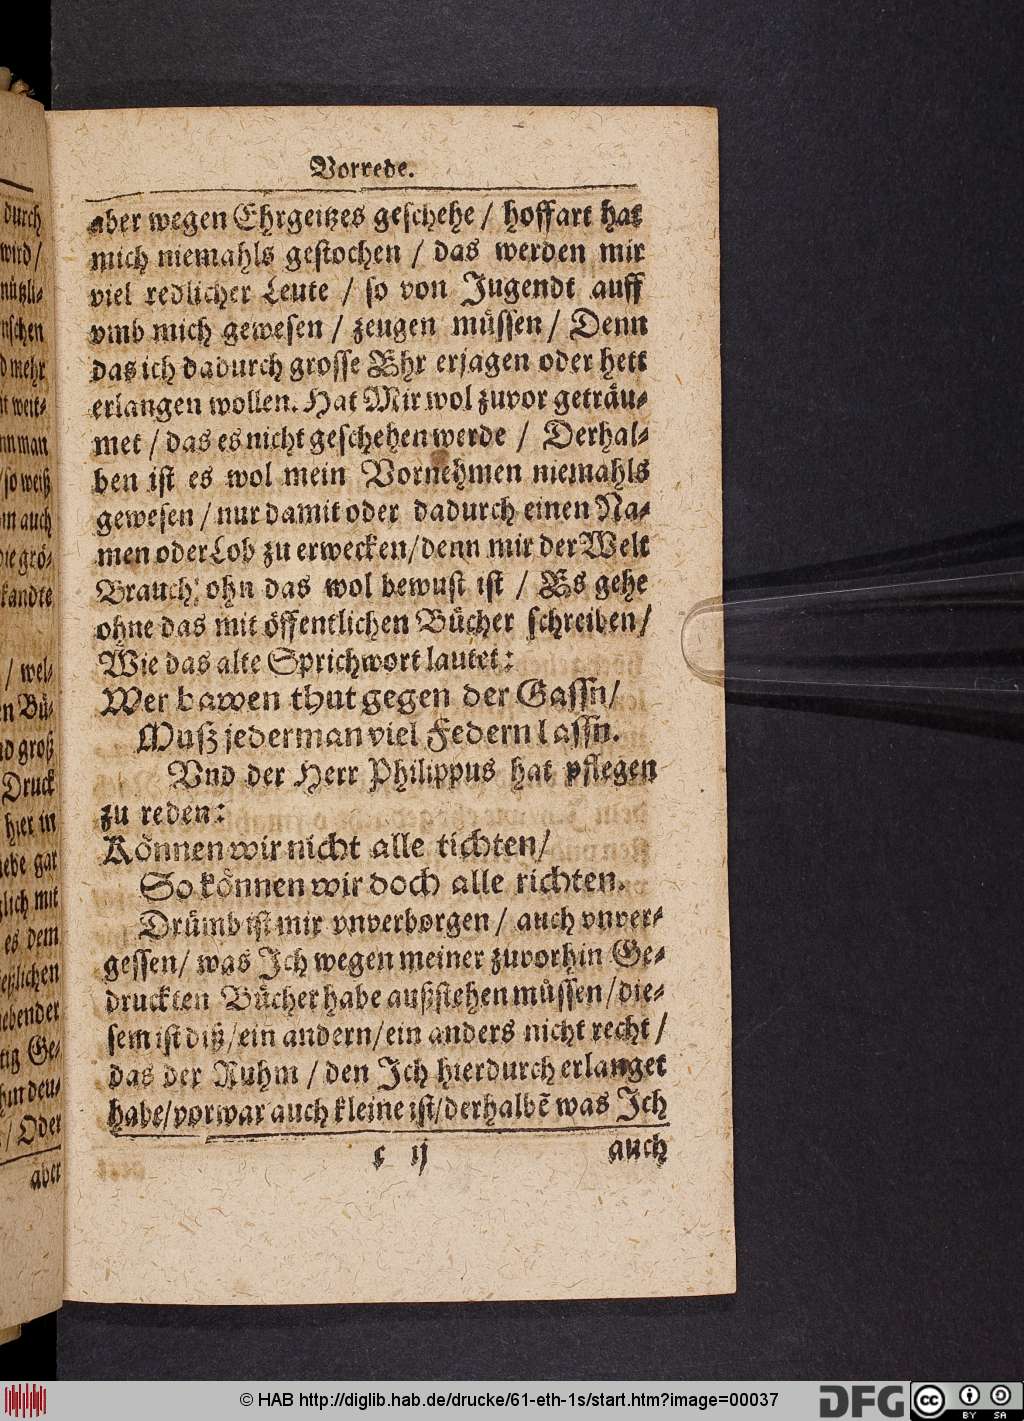 Vorrede.
aber wegen Ehrgeitzes geschehe / hoffart hat
mich niemahls gestochen / das werden mir
viel redlicher Leute / so von Jugendt auff
vmb mich gewesen / zeugen müssen / Denn
das ich dadurch grosse Ehr erjagen oder hett
erlangen wollen. Hat Mir wol zuvor geträu-
met / das es nicht geschehen werde / Derhal-
ben ist es wol mein Vornehmen niemahls
gewesen / nur damit oder dadurch einen Na-
men oder Lob zu erwecken / denn mir der Welt
Brauch ohn das wol bewust ist / Es gehe
ohne das mit öffentlichen Bücher schreiben /
Wie das alte Sprichwort lautet:
Wer bawen thut gegen der Gassn /
Muß jederman viel Federn lassn.
Vnd der Herr Philippus hat pflegen
zu reden:
Können wir nicht alle tichten /
So können wir doch alle richten.
Drümb ist mir vnverborgen / auch vnver-
gessen / was Ich wegen meiner zuvorhin Ge-
druckten Bücher habe außstehen müssen / die-
sem ist diß / ein andern / ein anders nicht recht /
das der Ruhm / den Ich hierdurch erlanget
habe / vorwar auch kleine ist / derhalbẽ was Ich
c ij
auch
durch
wird /
nützli-
nschen
d mehr
weit-
man
/ so weiß
auch
die grö-
kandte
/ wel-
Bü-
groß
Druck
hier in
gar
mit
es dem
Ge-
/ Oder
aber
© HAB http://diglib.hab.de/drucke/61-eth-1s/start.htm?image=00037
DFG
cc
BY SA